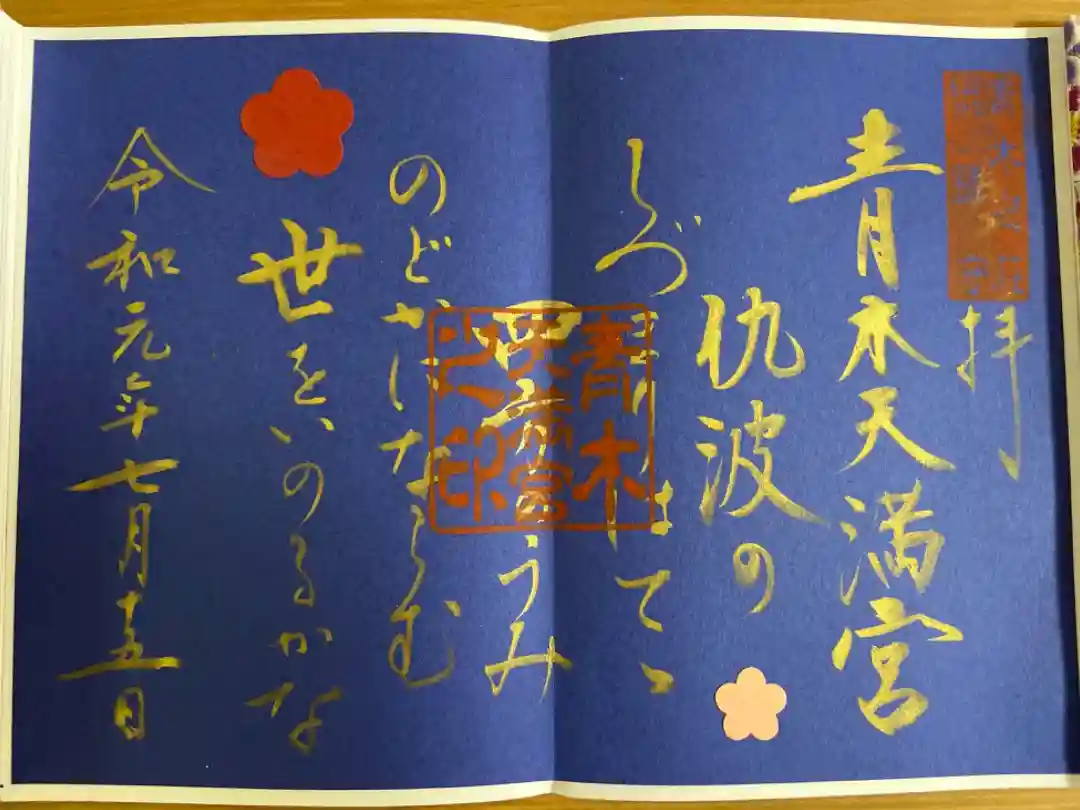 奉拝
青木天満宮
仇波の
しづまりはてゝ
四方のうみ
のどかにならむ
世をいのるかな
令和元年七月十五日
青木
天満宮
之印